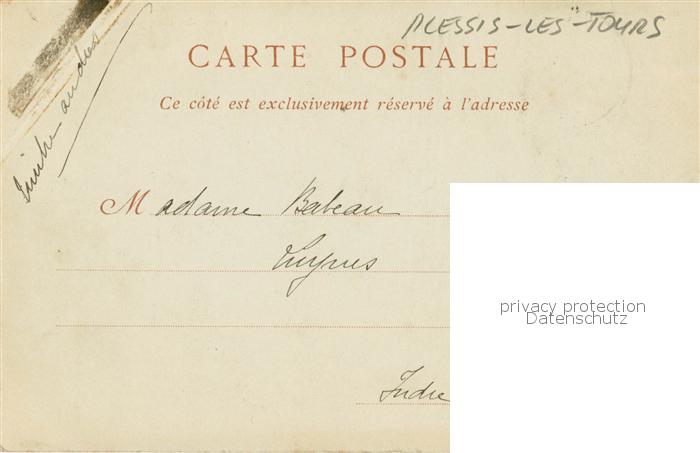 PLESSIS-LES-TOURS
CARTE POSTALE
Ce côté est exclusivement réservé à l'adresse
Timbre au dos
Madame Babeau
Luynes
privacy protection
Datenschutz
Indre